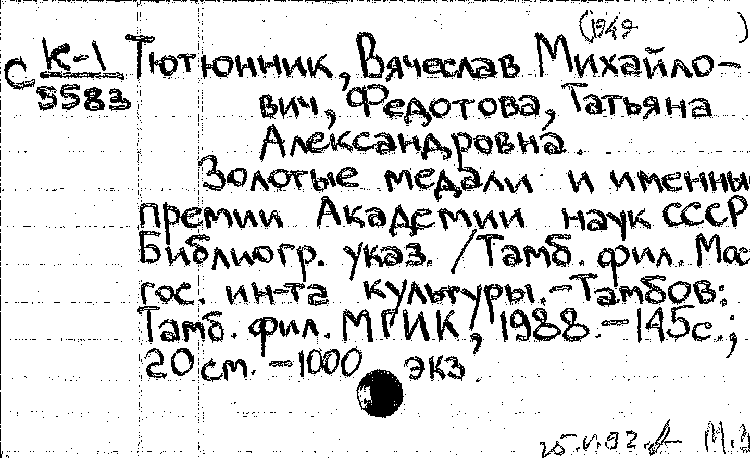 (1949 )
С К-1 Тютюнник, Вячеслав Михайло-
5583 вич, Федотова, Татьяна
Александровна.
Золотые медали и именны
премии Академии наук СССР
Библиогр. указ. / Тамб. фил. Мос
гос. ин-та культуры. - Тамбов:
Тамб. фил. МГИК, 1988. - 145с.;
20 см. - 1000 экз.